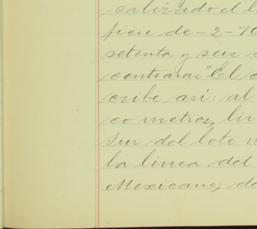 calizado el l
fiere de -2-70
setenta y seis
contrarar "El
cribe asi: al
co metros, lin
sur del lote n
la linea del
Mexicano; de